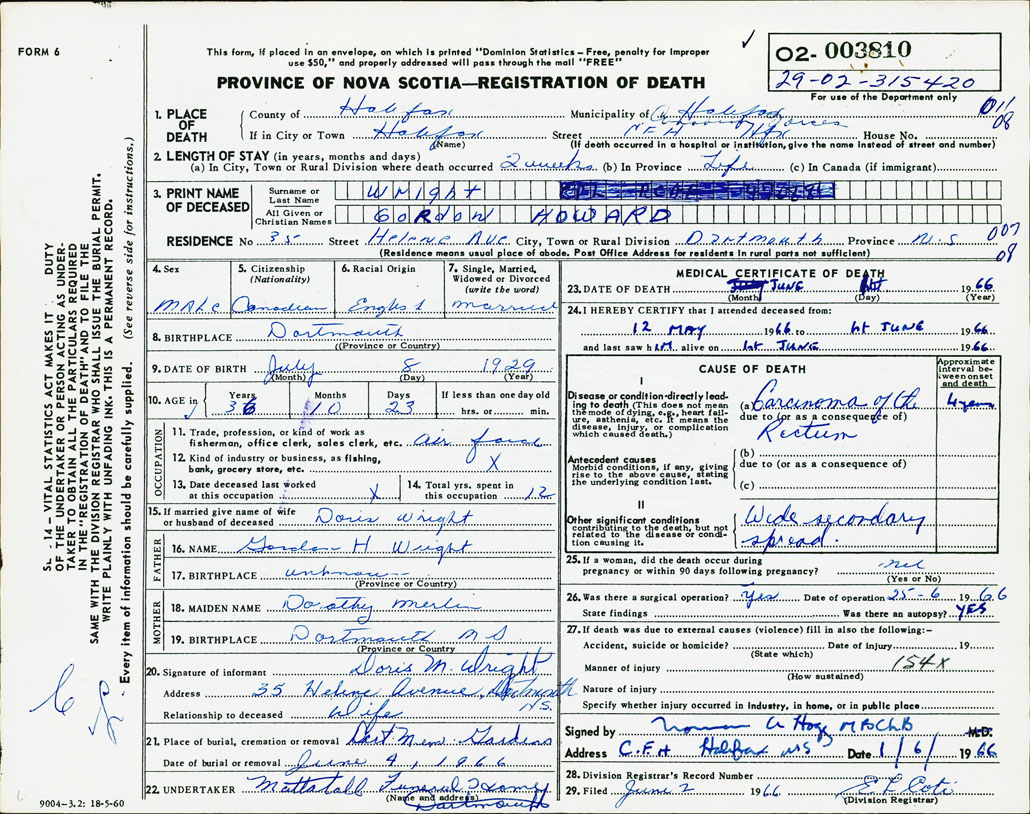 FORM 6
This form, if placed in an envelope, on which is printed "Dominion Statistics—Free, penalty for improper
use $50," and properly addressed will pass through the mail "FREE"
✓
O2- 003810
29-02-315420
For use of the Department only
PROVINCE OF NOVA SCOTIA—REGISTRATION OF DEATH
1. PLACE OF DEATH
County of Halifax Municipality of Halifax
If in City or Town Halifax Street Hfx House No.
(Name) (If death occurred in a hospital or institution, give the name instead of street and number)
08
2. LENGTH OF STAY (in years, months and days)
(a) In City, Town or Rural Division where death occurred 2 weeks (b) In Province Life (c) In Canada (if immigrant)
3. PRINT NAME OF DECEASED
Surname or Last Name WRight
All Given or Christian Names GORDON HOWARD
RESIDENCE No 35 Street Helene Ave City, Town or Rural Division Dartmouth Province N.S 007
(Residence means usual place of abode. Post Office Address for residents in rural parts not sufficient) 08
4. Sex Male
5. Citizenship (Nationality) Canadian
6. Racial Origin English
7. Single, Married, Widowed or Divorced (write the word) Married
8. BIRTHPLACE Dartmouth
(Province or Country)
9. DATE OF BIRTH July 8 1929
(Month) (Day) (Year)
10. AGE in Years 36 Months 10 Days 23 If less than one day old hrs. or min.
OCCUPATION
11. Trade, profession, or kind of work as
fisherman, office clerk, sales clerk, etc. Air force
12. Kind of industry or business, as fishing,
bank, grocery store, etc. X
13. Date deceased last worked
at this occupation X
14. Total yrs. spent in
this occupation 12
15. If married give name of wife
or husband of deceased Doris Wright
FATHER
16. NAME Gordon H Wright
17. BIRTHPLACE unknown
(Province or Country)
MOTHER
18. MAIDEN NAME Dorothy Merlin
19. BIRTHPLACE Dartmouth N S
(Province or Country)
20. Signature of informant Doris M. Wright
Address 35 Helene Avenue, Dartmouth
N.S.
Relationship to deceased Wife
21. Place of burial, cremation or removal Dart. Mem. Gardens
Date of burial or removal June 4, 1966
22. UNDERTAKER Mattatall Funeral Home
(Name and address) Dartmouth
MEDICAL CERTIFICATE OF DEATH
23. DATE OF DEATH JUNE 1st 1966
(Month) (Day) (Year)
24. I HEREBY CERTIFY that I attended deceased from:
12 MAY 1966 to 1st JUNE 1966
and last saw him alive on 1st JUNE 1966
CAUSE OF DEATH
Approximate interval between onset and death
I
Disease or condition directly leading to death (This does not mean
the mode of dying, e.g., heart failure, asthenia, etc. It means the
disease, injury, or complication
which caused death.)
(a) Carcinoma of the 4 years
due to (or as a consequence of)
Rectum
Antecedent causes
Morbid conditions, if any, giving
rise to the above cause, stating
the underlying condition last.
(b)
due to (or as a consequence of)
(c)
II
Other significant conditions
contributing to the death, but not
related to the disease or condition causing it.
Wide secondary
spread.
25. If a woman, did the death occur during
pregnancy or within 90 days following pregnancy? nil
(Yes or No)
26. Was there a surgical operation? Yes Date of operation 25-6 1966
State findings Was there an autopsy? YES
27. If death was due to external causes (violence) fill in also the following:—
Accident, suicide or homicide? Date of injury 19
(State which)
Manner of injury 154X
(How sustained)
Nature of injury
Specify whether injury occurred in industry, in home, or in public place
Signed by Norman A Hogg MBChB M.D.
Address C.F.H Halifax NS Date 1/6/ 1966
28. Division Registrar's Record Number
29. Filed June 2 1966
(Division Registrar)
14 – VITAL STATISTICS ACT MAKES IT DUTY
OF THE UNDERTAKER OR PERSON ACTING AS UNDER-
TAKER TO OBTAIN ALL THE PARTICULARS REQUIRED
IN THE "REGISTRATION OF DEATH" AND TO FILE THE
SAME WITH THE DIVISION REGISTRAR WHO SHALL ISSUE THE BURIAL PERMIT.
WRITE PLAINLY WITH UNFADING INK. THIS IS A PERMANENT RECORD.
Every item of information should be carefully supplied. (See reverse side for instructions.)
9004-3.2: 18-5-60